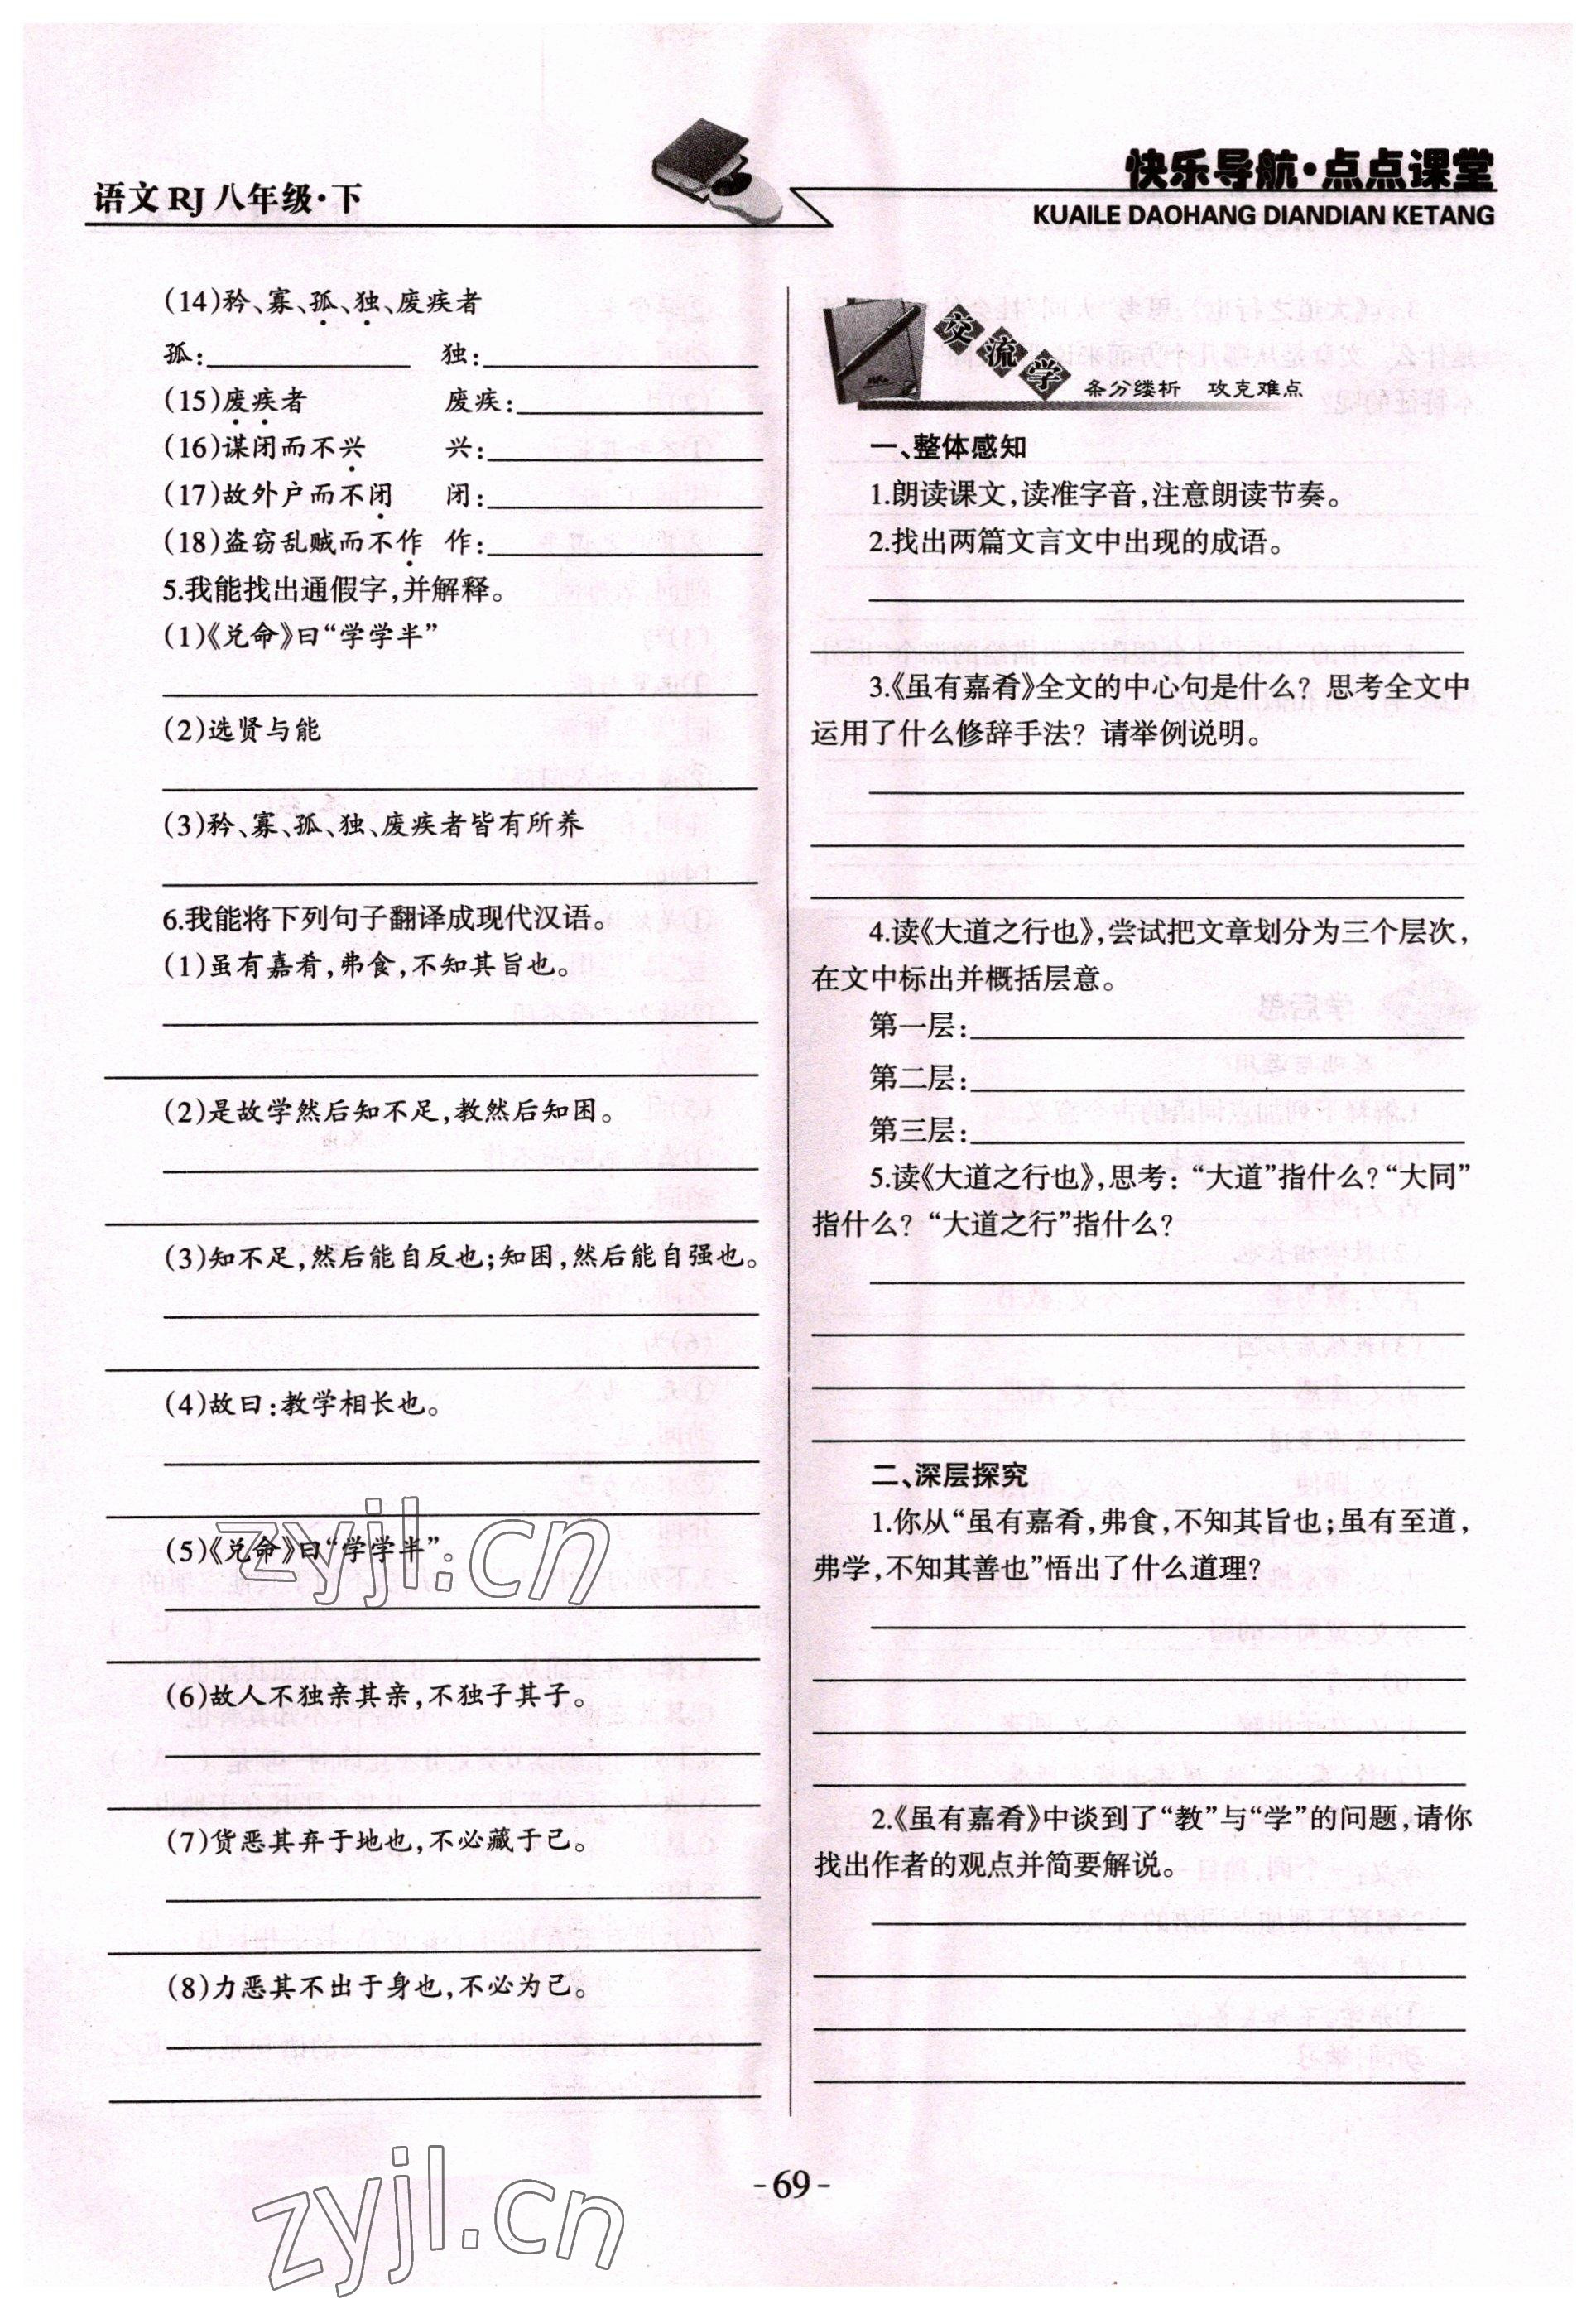 语文RJ八年级·下
快乐导航·点点课堂
KUAILE DAOHANG DIANDIAN KETANG
(14)矜、寡、孤、独、废疾者
孤:　　独:
(15)废疾者　废疾:
(16)谋闭而不兴　兴:
(17)故外户而不闭　闭:
(18)盗窃乱贼而不作　作:
5.我能找出通假字,并解释。
(1)《兑命》曰“学学半”
(2)选贤与能
(3)矜、寡、孤、独、废疾者皆有所养
6.我能将下列句子翻译成现代汉语。
(1)虽有嘉肴,弗食,不知其旨也。
(2)是故学然后知不足,教然后知困。
(3)知不足,然后能自反也;知困,然后能自强也。
(4)故曰:教学相长也。
(5)《兑命》曰“学学半”
(6)故人不独亲其亲,不独子其子。
(7)货恶其弃于地也,不必藏于己。
(8)力恶其不出于身也,不必为己。
交流学
条分缕析　攻克难点
一、整体感知
1.朗读课文,读准字音,注意朗读节奏。
2.找出两篇文言文中出现的成语。
3.《虽有嘉肴》全文的中心句是什么？思考全文中
运用了什么修辞手法？请举例说明。
4.读《大道之行也》,尝试把文章划分为三个层次,
在文中标出并概括层意。
第一层:
第二层:
第三层:
5.读《大道之行也》,思考:“大道”指什么？“大同”
指什么？“大道之行”指什么？
二、深层探究
1.你从“虽有嘉肴,弗食,不知其旨也;虽有至道,
弗学,不知其善也”悟出了什么道理？
2.《虽有嘉肴》中谈到了“教”与“学”的问题,请你
找出作者的观点并简要解说。
zyjl.cn
zyjl.cn
-69-